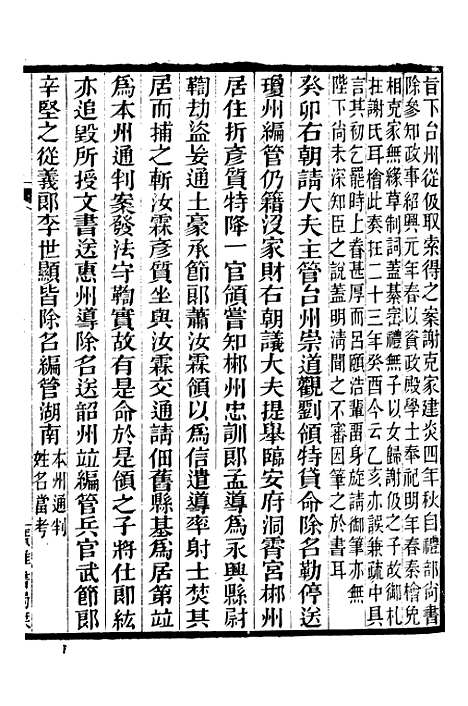 旨下台州從伋取索得之案謝克家建炎四年秋自禮部尚書
除參知政事紹興元年春以資政殿學士奉祠明年春秦檜免
相克家無緣草制詞蓋綦崇禮無子以女歸謝伋之子故御札
在謝氏耳檜此奏在二十三年癸酉今云乙亥亦恐甚疏中具
言其初乞罷時上眷甚厚而呂頤浩輩面身旋請御筆亦無
陛下尚未深知臣之說蓋明清聞之不審因筆之於書耳
癸卯右朝請大夫主管台州崇道觀劉領特貸命除名勒停送
瓊州編管仍籍沒家財右朝議大夫提舉臨安府洞霄宮郴州
居住折彥質特降一官領嘗知郴州忠訓郎孟導為永興縣尉
鞫劫盜妄通土豪承節郎蕭汝霖領以為信遣導率射士焚其
居而捕之斬汝霖彥質坐與汝霖交通請佃舊縣基為居第竝
為本州通判案發法寺鞫實故有是命於是領之子將仕郎絃
亦追毀所授文書送惠州導除名送韶州竝編管兵官武節郎
辛堅之從義郎李世顯皆除名編管湖南
本州通判
姓名當考